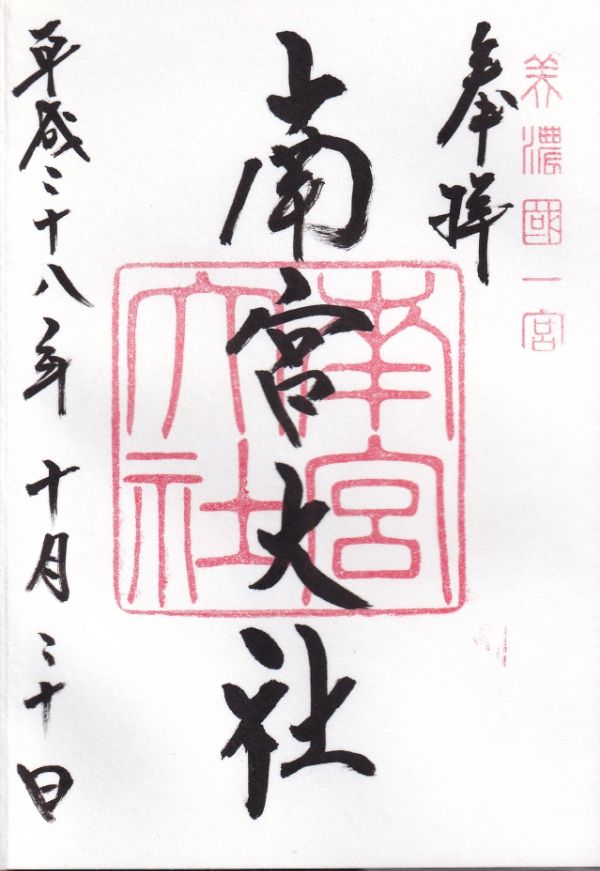 美濃國一宮
奉拝
南宮大社
南宮大社
平成二十八年十月二十日